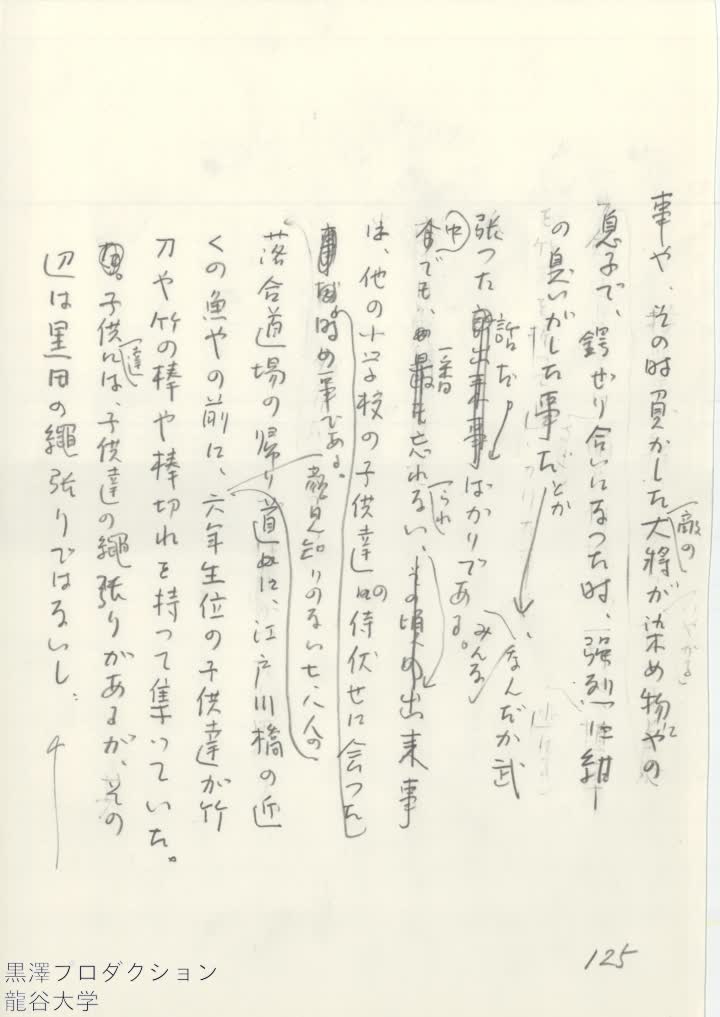 事や、その時負かした敵の大将が染め物やの
息子で、鍔ぜり合いになつた時、強烈に紺
の臭いがした事だとか、なんだかみんな武
張つた話だ出来事ばかりである。
中でも、一番最も忘れられない、その頃の出来事
は、他の小学校の子供達の待伏せに会つた
時の事である。
落合道場の帰り道に、江戸川橋の近
くの魚やの前に、顔見知りのない七八人の六年生位の子供達が竹
刀や竹の棒や棒切れを持つて集つていた。
子供達には、子供達の縄張りがあるが、その
辺は黒田の縄張りではないし、
125
黒澤プロダクション
龍谷大学